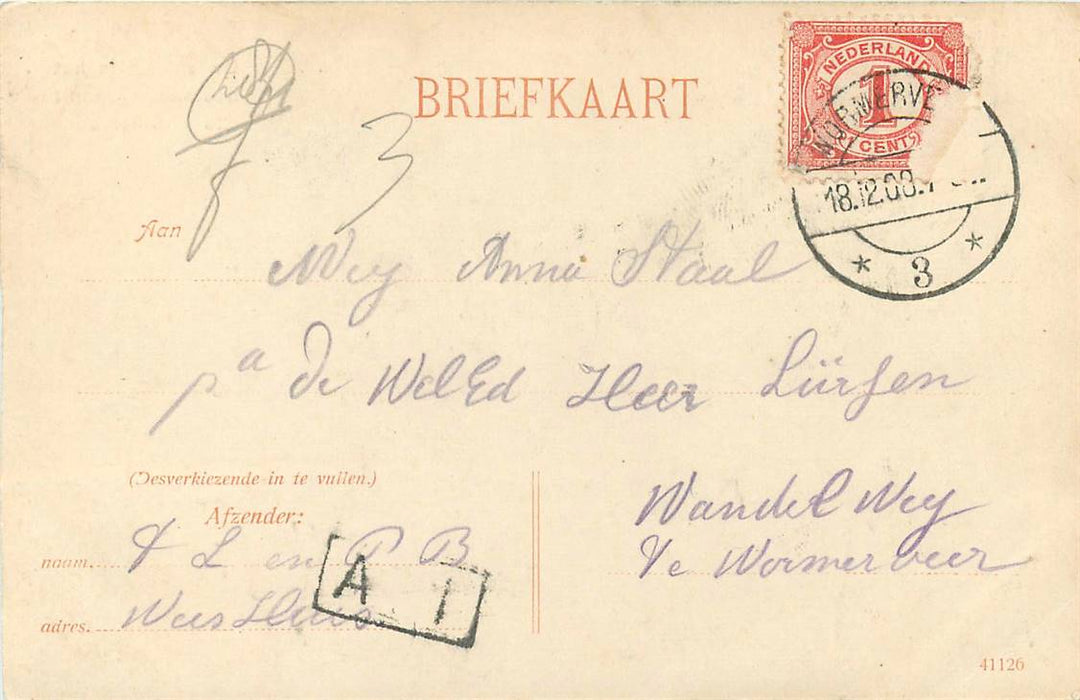 BRIEFKAART
NEDERLAND
1
CENT
WORMERVE
18.12.08.
3
3
Aan
Mej Anna Staal
p a De WelEd Heer Lürsen
Wandel Weg
Te Wormerveer
(Desverkiezende in te vullen.)
Afzender:
naam. L en P B
adres. Wees Huis
A 1
41126